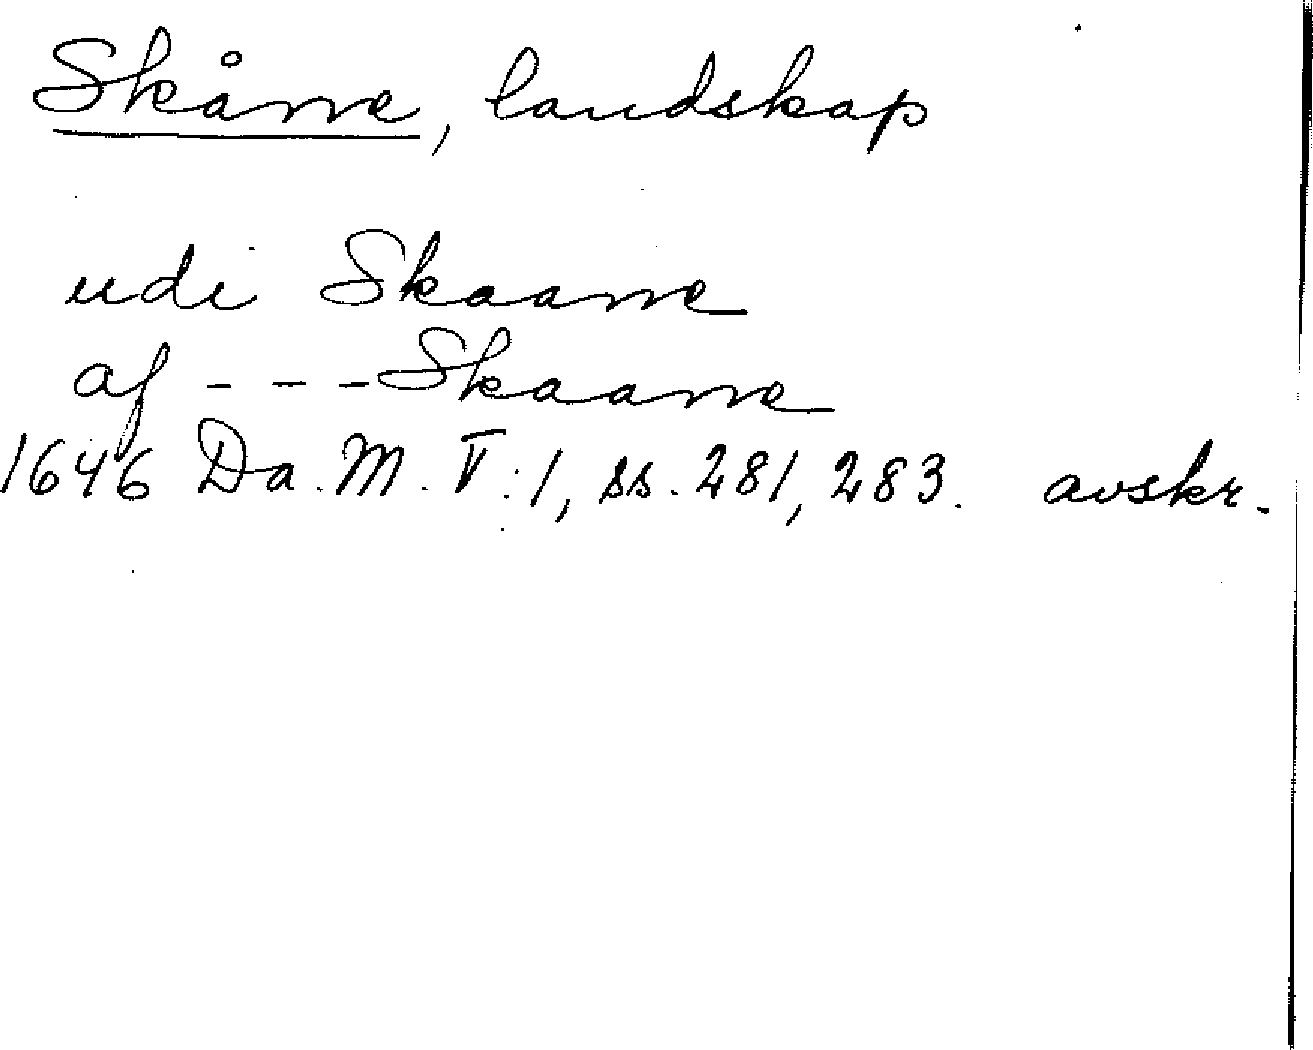 Skåne, landskap
udi Skaane
af - - - Skaane
1646 Da. M. V:1, ss. 281, 283. avskr.